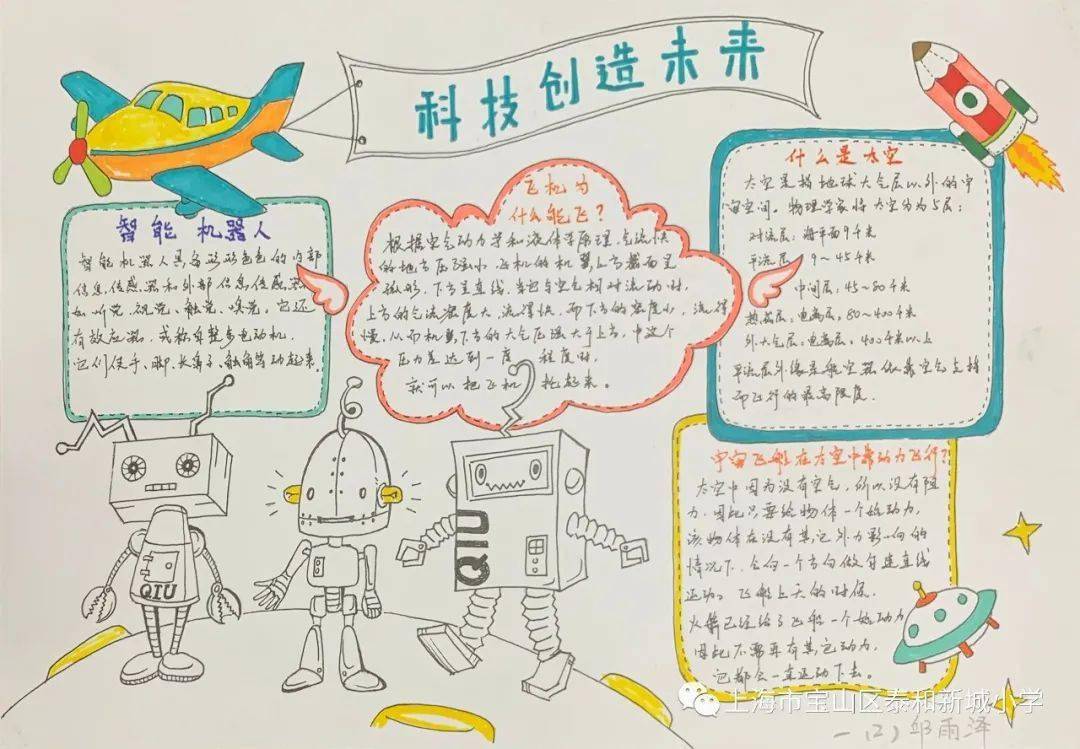 科技创造未来
智能 机器人
智能机器人具备形形色色的内部
信息传感器和外部信息传感器
如听觉、视觉、触觉、嗅觉。它还
有效应器,或称自整步电动机,
它们使手、脚、长鼻子、触角等动起来。
飞机为
什么能飞?
根据空气动力学和液体学原理,气流快
的地方压强小,飞机的机翼上方截面呈
弧形,下方呈直线,当它与空气相对流动时,
上方的气流密度大,流得快,而下方的密度小,流得
慢,从而机翼下方的大气压强大于上方,中这个
压力差达到一度 程度时,
就可以把飞机 托起来。
什么是太空
太空是指地球大气层以外的宇
宙空间。物理学家将太空分为5层:
对流层:海平面9千米
平流层:9~45千米
中间层:45~80千米
热成层:电离层:80~400千米
外大气层:电离层:400千米以上
平流层外缘是航空器依靠空气支持
而飞行的最高限度.
宇宙飞船在太空中靠动力飞行?
太空中因为没有空气,所以没有阻
力.因此只要给物体一个始动力,
该物体在没有其它外力影响的
情况下,会向一个方向做匀速直线
运动。飞船上天的时候.
火箭已经给了飞船一个始动力
因此不需再有其它动力,
它都会一直运动下去。
QIU
QIU
上海市宝山区泰和新城小学
一(2) 邱雨泽